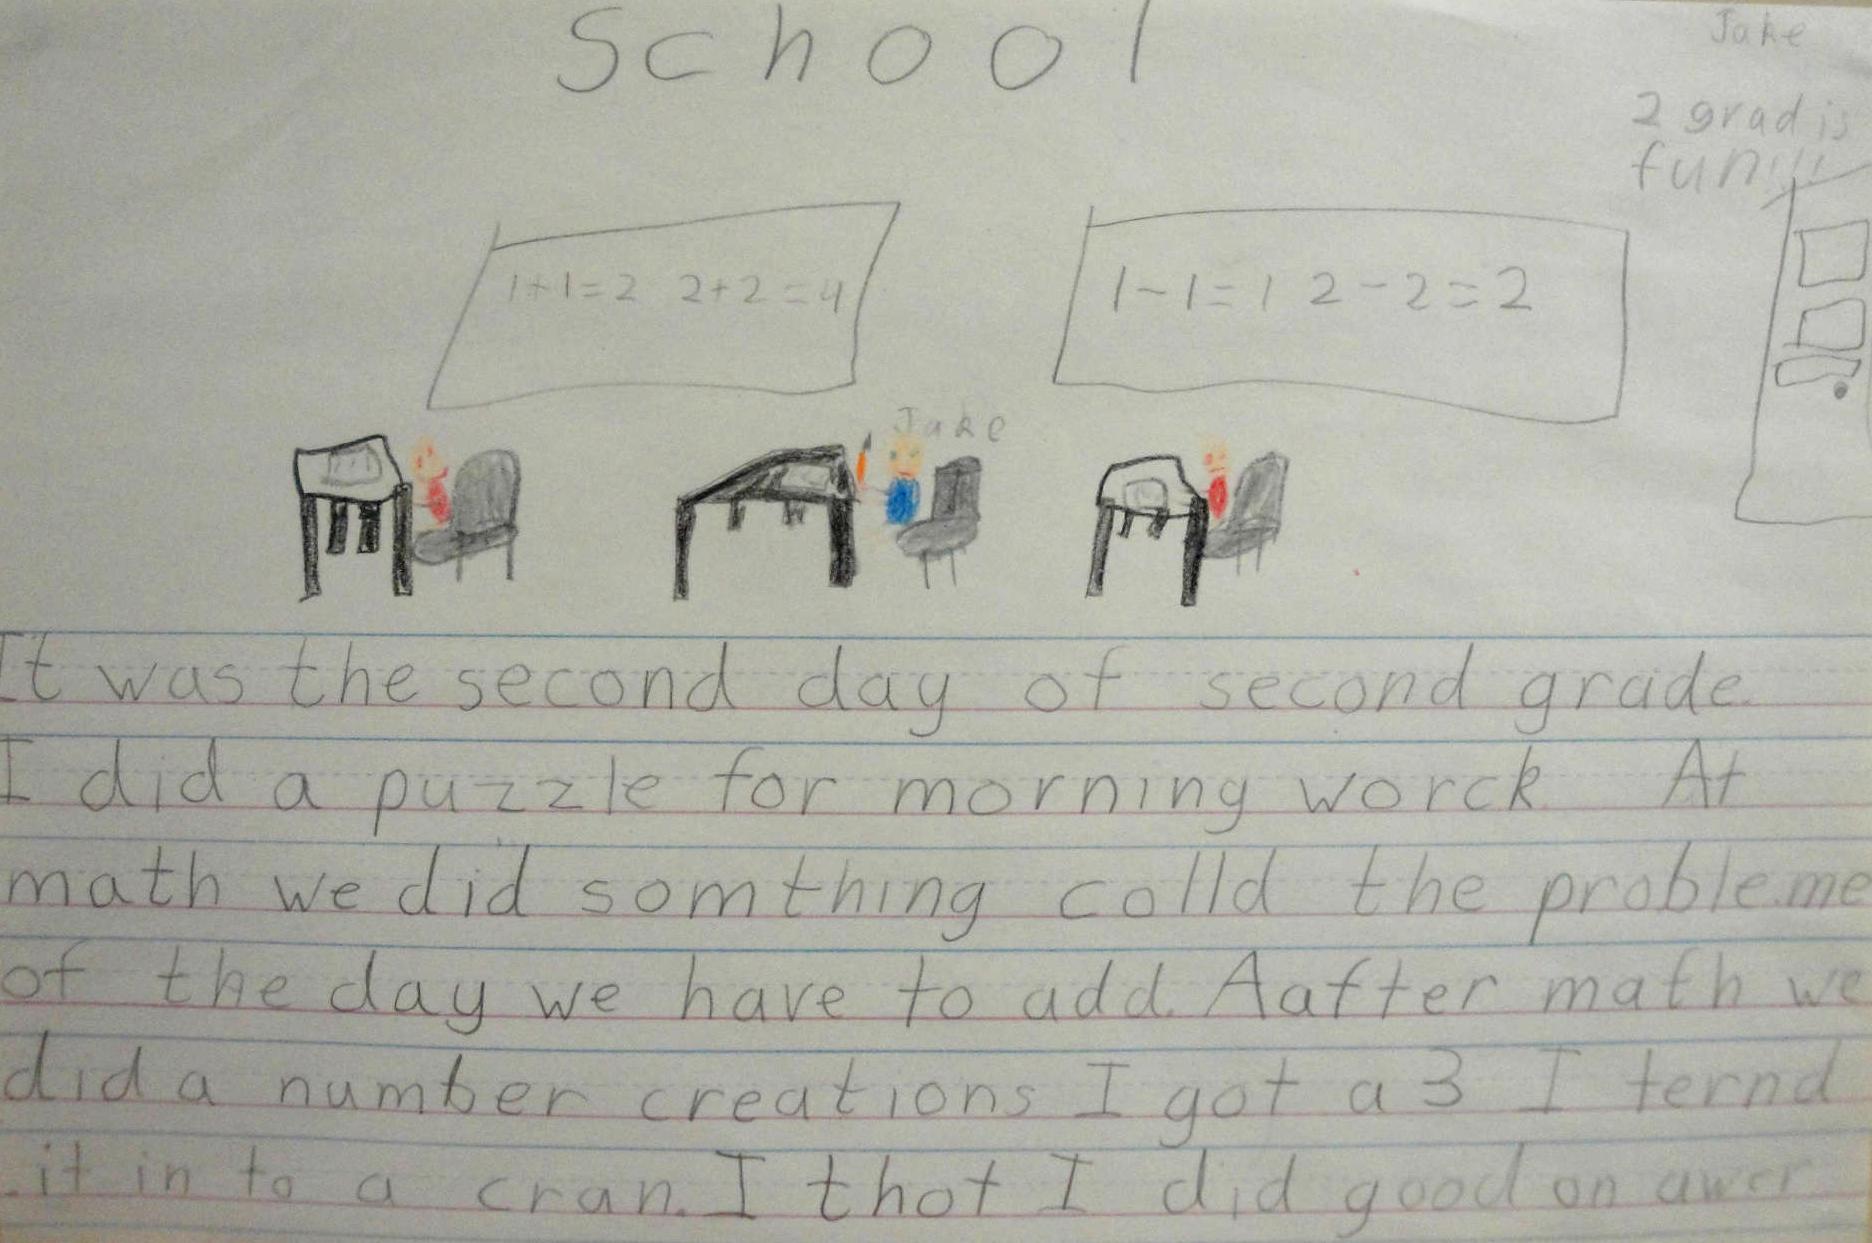 School
Jake
2 grad is
fun!!!
1+1=2 2+2=4
1-1=1 2-2=2
Jake
It was the second day of second grade.
I did a puzzle for morning worck. At
math we did somthing colld the probleme
of the day we have to add. Aafter math we
did a number creations I got a 3 I ternd
it in to a cran. I thot I did good on awer